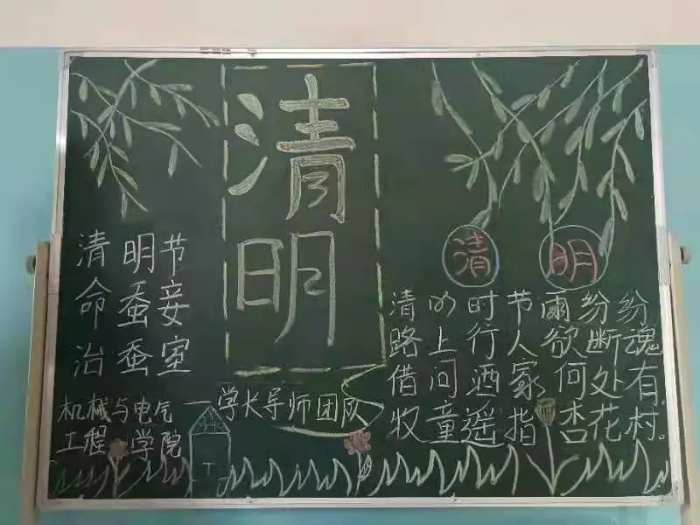 清明
清明节
命蚕妾
治蚕室
机械与电气
工程学院
——学长导师团队
清明
清明时节雨纷纷
路上行人欲断魂
借问酒家何处有
牧童遥指杏花村。